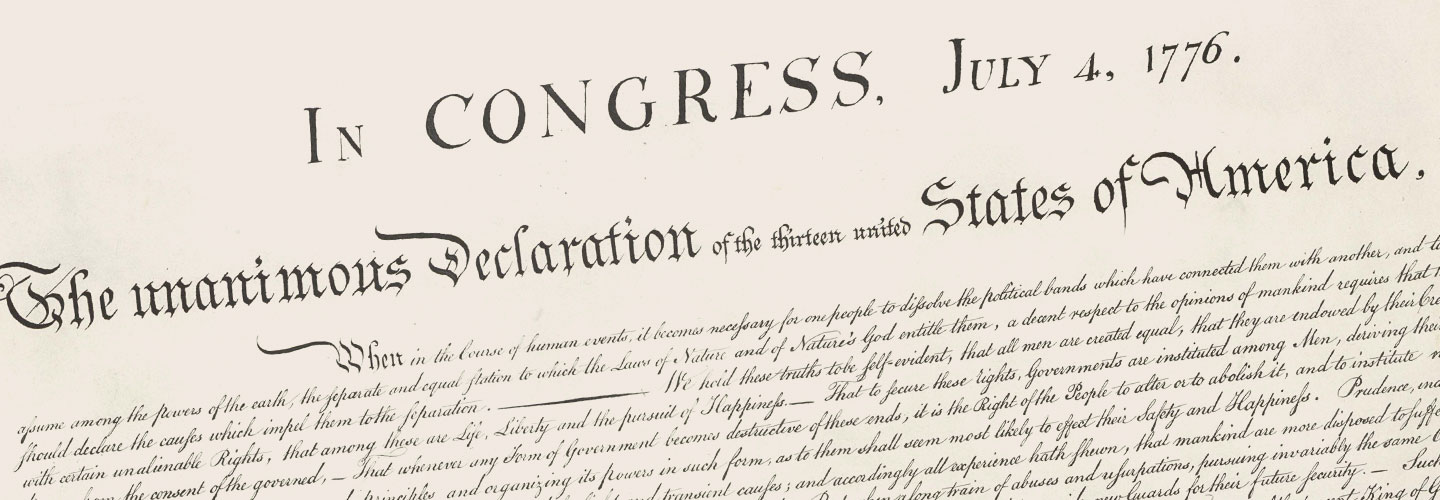 In CONGRESS, July 4, 1776.
The unanimous Declaration of the thirteen united States of America,
When in the Course of human events, it becomes necessary for one people to dissolve the political bands which have connected them with another, and to
assume among the powers of the earth, the separate and equal station to which the Laws of Nature and of Nature's God entitle them, a decent respect to the opinions of mankind requires that
should declare the causes which impel them to the separation. — We hold these truths to be self-evident, that all men are created equal, that they are endowed by their
with certain unalienable Rights, that among these are Life, Liberty and the pursuit of Happiness.— That to secure these rights, Governments are instituted among Men, deriving
the consent of the governed, — That whenever any Form of Government becomes destructive of these ends, it is the Right of the People to alter or to abolish it, and to institute
principles and organizing its powers in such form, as to them shall seem most likely to effect their Safety and Happiness. Prudence,
transient causes; and accordingly all experience hath shewn, that mankind are more disposed to
a long train of abuses and usurpations, pursuing invariably the same
Guards for their future security. — Such
King of